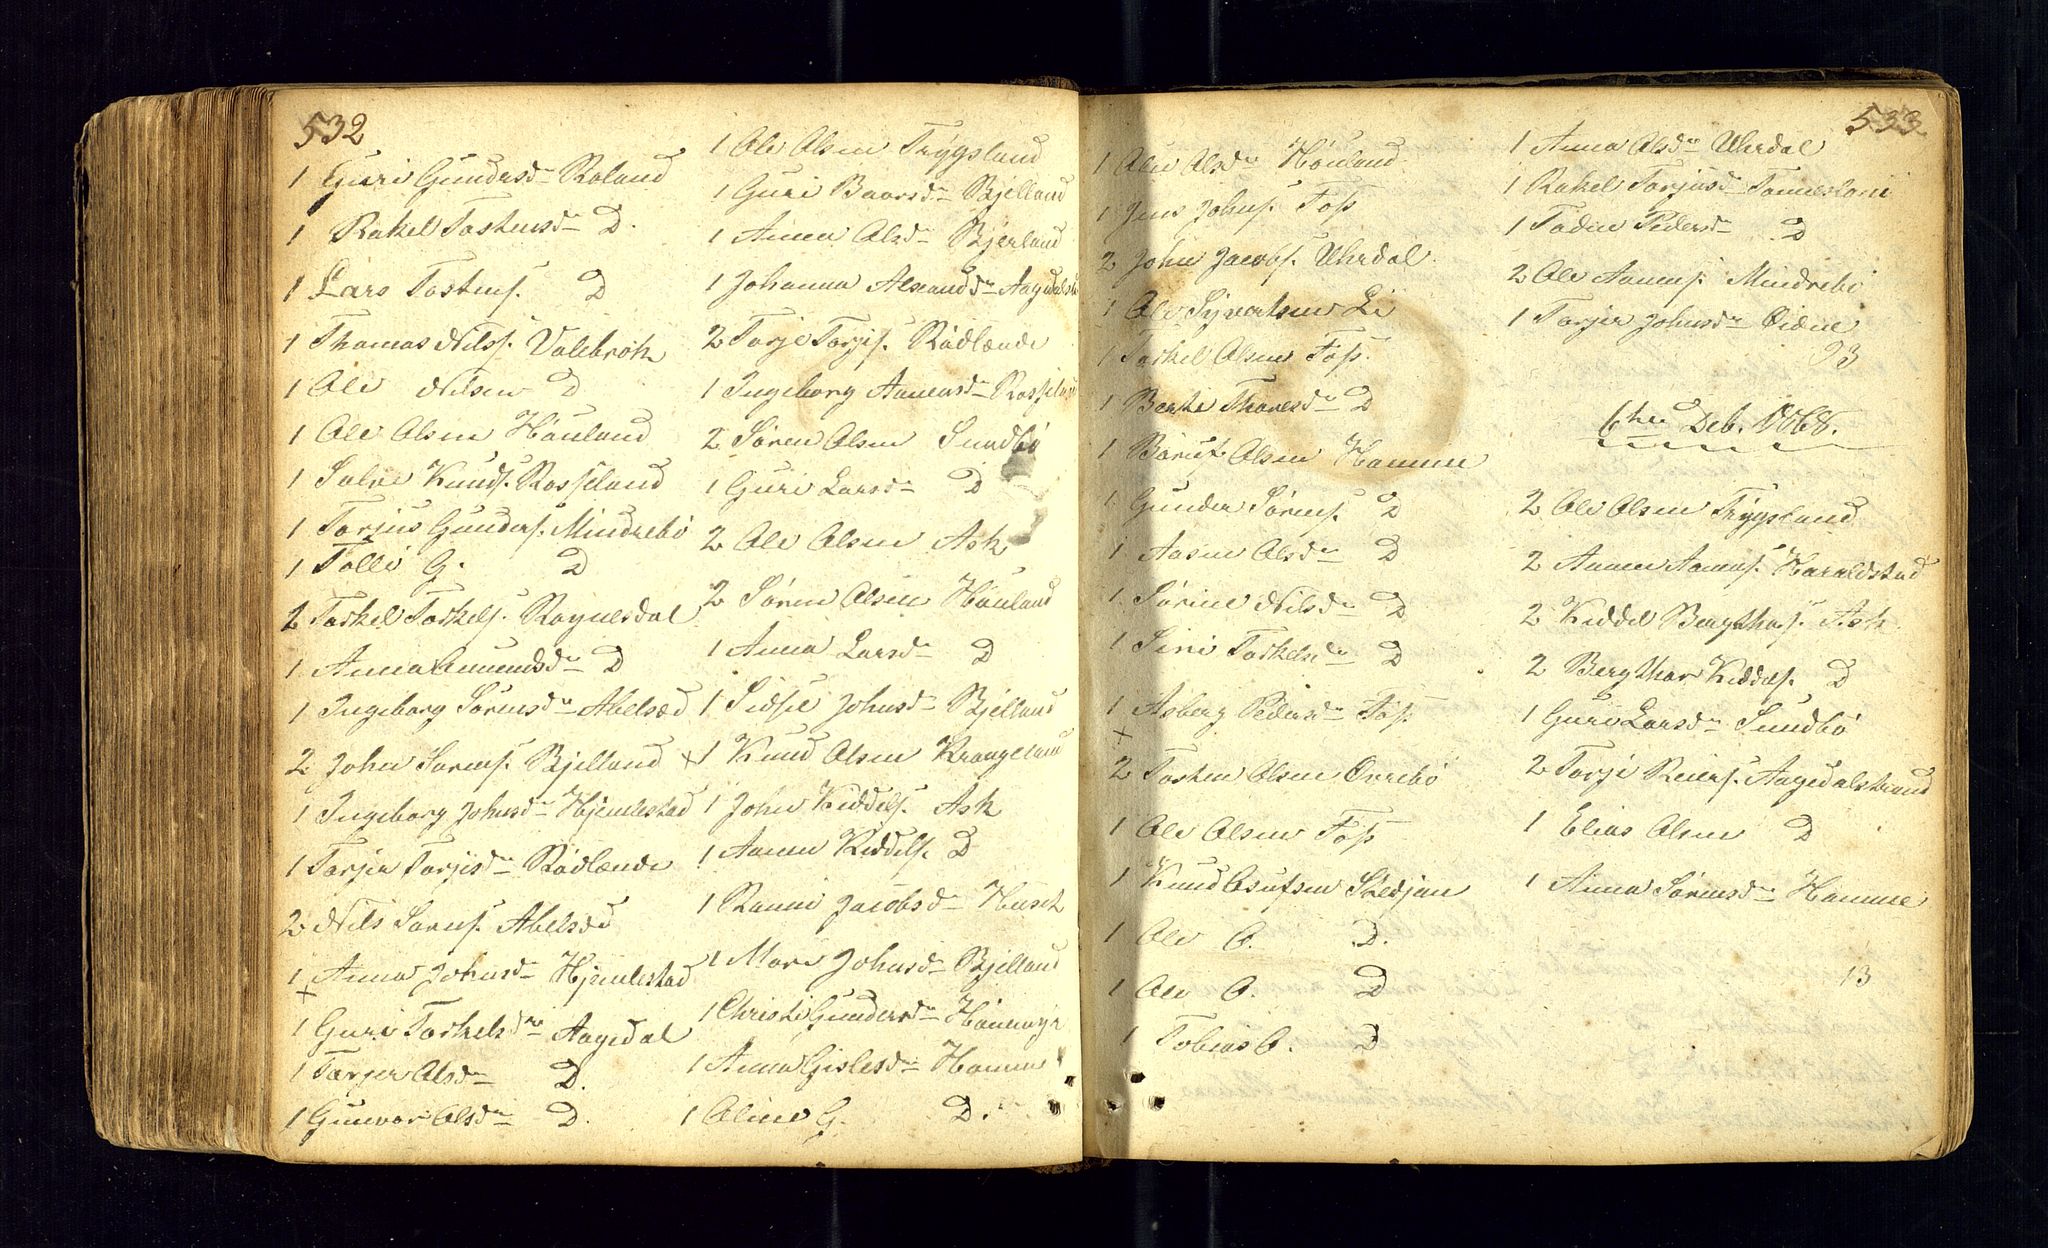 532
1 Guri Gundersdr Roland
1 Rakel Tostensdr D.
1 Lars Tostens. D
1 Thomas Nilss. Valebrok
1 Ole Nilsen D
1 Ole Olsen Hönland
1 Salve Knuds. Rosseland
1 Torjus Gunders. Mindrebö
1 Tollö G. D
2 Torkel Torkels. Ragnesdal
1 Anna Amundsdr D
1 Ingeborg Sörensdr Abelsæd
2 John Sörens. Bjelland
1 Ingeborg Johnsdr Hjemlestad
1 Torjer Torjisdr Rödlende
2 Nils Sörens. Abelsæd
1 Anna Johnsdr Hjemlestad
+
1 Guri Torkelsdr Aagedal
1 Torjer Olsdr D.
1 Gunvor Olsdr D.
1 Ole Olsen Trygsland
1 Guri Baarsdr Bjelland
1 Anna Olsdr Bjerland
1 Johanna
2 Torje Torjis. Rödlende
1 Ingeborg Aanensdr
2 Sören Olsen Sundbö
1 Guri Larsdr D
2 Ole Olsen Ask
2 Sören Olsen Hönland
1 Anna Larsdr D
1 Sidsel Johnsdr Bjelland
+1 Knud Olsen
1 John Keddels. Ask
1 Aanen Keddels. D
1 Ranni Jacobsdr Husch
1 Mari Johnsdr Bjelland
1 Christi Gundersdr
1 Anna Gislesdr Homme
1 Oline G. D.
533
1 Ole Olsdr Hönland
1 Jens Johns. Foss
2 John Jacobs. Uhrdal
1 Ole Syvertsen Li
1 Torkel Olsen Foss.
1 Berte Thoresdr D
1 Olsen Homme
1 Gunder Sörens. D
1 Aasen Olsdr D
1 Sörine Nilsdr D
1 Siri Torkelsdr D
1 Asberg Pedersdr Foss
+
2 Tosten Olsen Övrebö
1 Ole Olsen Foss
1 Knud Osufsen Skedjan
1 Ole O. D.
1 Ole O. D
1 Tobias O. D
1 Anna Olsdr Uhrdal
1 Rakel Torjusdr
1 Todne Pedersdr D
2 Ole Aanens. Mindrebö
1 Torjer Johnsdr Eidne
93
6te Deb. 1868.
2 Ole Olsen Trygsland
2 Aanen Aanens. Haraldstad
2 Keddel Bergthors. Ask
2 Bergthor Keddels. D
1 Guri Larsdr Sundbö
2 Torje Reiers. Aagedalstrand
1 Elias Olsen D
1 Anna Sörensdr Homme
13